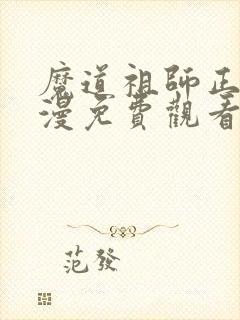 魔道祖師正
漫免費觀看
范發